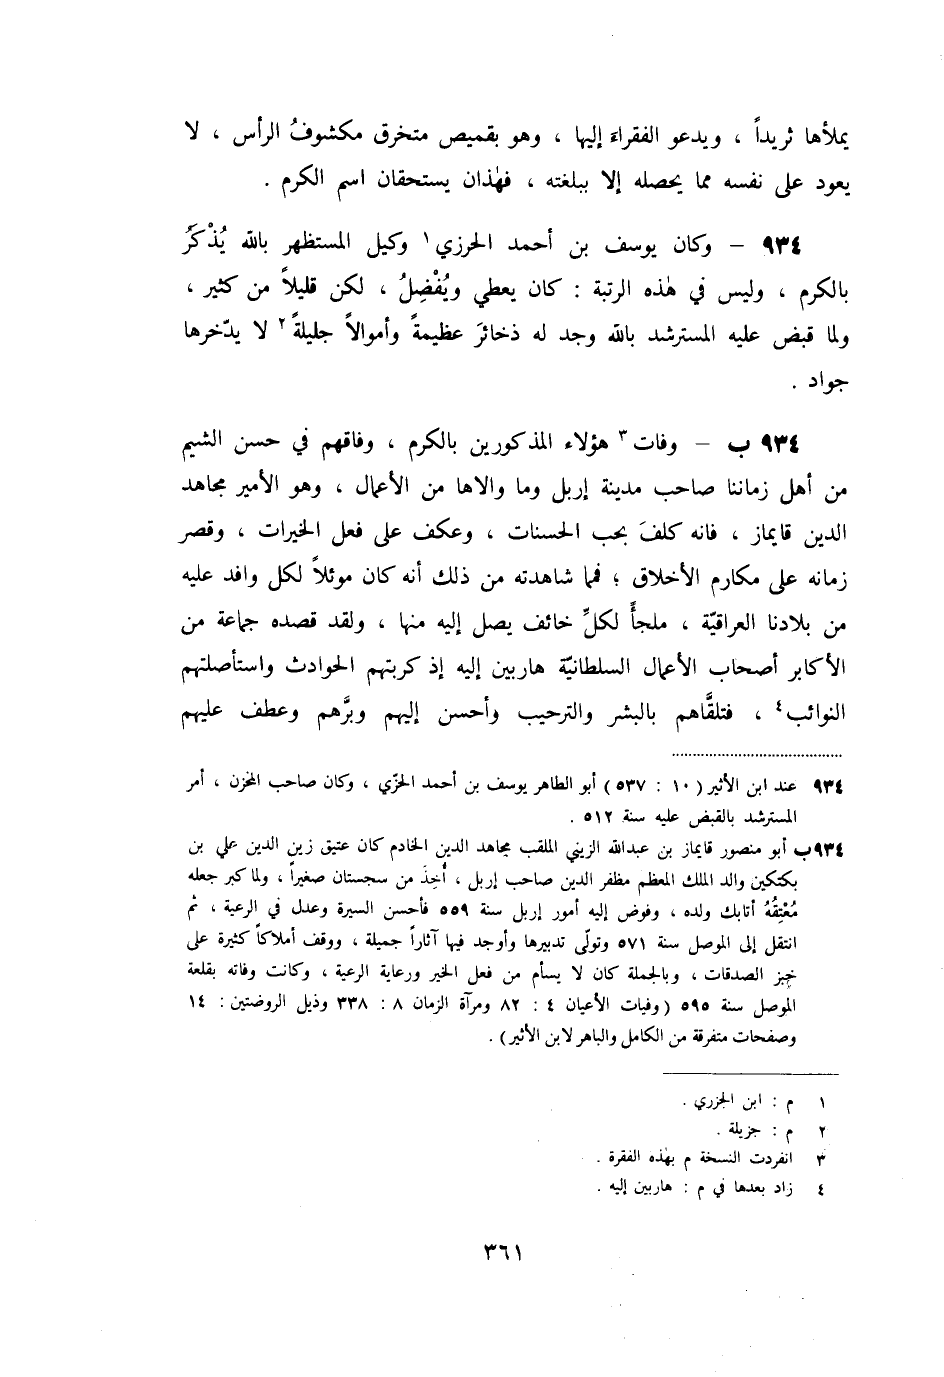 يملأها ثريداً ، ويدعو الفقراءَ إليها ، وهو بقميص متخرق مكشوفُ الرأس ، لا
يعود على نفسه مما يحصله إلا ببلغته ، فهٰذان يستحقان اسم الكرم .
٩٣٤ – وكان يوسف بن أحمد الحرزي١ وكيل المستظهر بالله يُذْكَرُ
بالكرم ، وليس في هٰذه الرتبة : كان يعطي ويُفْضِلُ ، لكن قليلاً من كثير ،
ولما قبض عليه المسترشد بالله وجد له ذخائرَ عظيمةً وأموالاً جليلةً٢ لا يدّخرها
جواد .
٩٣٤ ب – وفات٣ هؤلاء المذكورين بالكرم ، وفاقهم في حسن الشيم
من أهل زماننا صاحب مدينة إربل وما والاها من الأعمال ، وهو الأمير مجاهد
الدين قايماز ، فانه كلفَ بحب الحسنات ، وعكف على فعل الخيرات ، وقصر
زمانه على مكارم الأخلاق ؛ فمما شاهدته من ذلك أنه كان موئلاً لكل وافد عليه
من بلادنا العراقيّة ، ملجأً لكلِّ خائف يصل إليه منها ، ولقد قصده جماعة من
الأكابر أصحاب الأعمال السلطانيّة هاربين إليه إذ كربتهم الحوادث واستأصلتهم
النوائب٤ ، فتلقَّاهم بالبشر والترحيب وأحسن إليهم وبرَّهم وعطف عليهم
٩٣٤ عند ابن الأثير ( ١٠ : ٥٣٧ ) أبو الطاهر يوسف بن أحمد الحزّي ، وكان صاحب المخزن ، أمر
المسترشد بالقبض عليه سنة ٥١٢ .
٩٣٤ب أبو منصور قايماز بن عبدالله الزيني الملقب مجاهد الدين الخادم كان عتيق زين الدين علي بن
بكتكين والد الملك المعظم مظفر الدين صاحب إربل ، أُخِذَ من سجستان صغيراً ، ولما كبر جعله
مُعْتِقُهُ أتابك ولده ، وفوض إليه أمور إربل سنة ٥٥٩ فأحسن السيرة وعدل في الرعية ، ثم
انتقل إلى الموصل سنة ٥٧١ وتولّى تدبيرها وأوجد فيها آثاراً جميلة ، ووقف أملاكاً كثيرة على
خبز الصدقات ، وبالجملة كان لا يسأم من فعل الخير ورعاية الرعية ، وكانت وفاته بقلعة
الموصل سنة ٥٩٥ ( وفيات الأعيان ٤ : ٨٢ ومرآة الزمان ٨ : ٣٣٨ وذيل الروضتين : ١٤
وصفحات متفرقة من الكامل والباهر لابن الأثير ) .
١ م : ابن الجزري .
٢ م : جزيلة .
٣ انفردت النسخة م بهٰذه الفقرة .
٤ زاد بعدها في م : هاربين إليه .
٣٦١